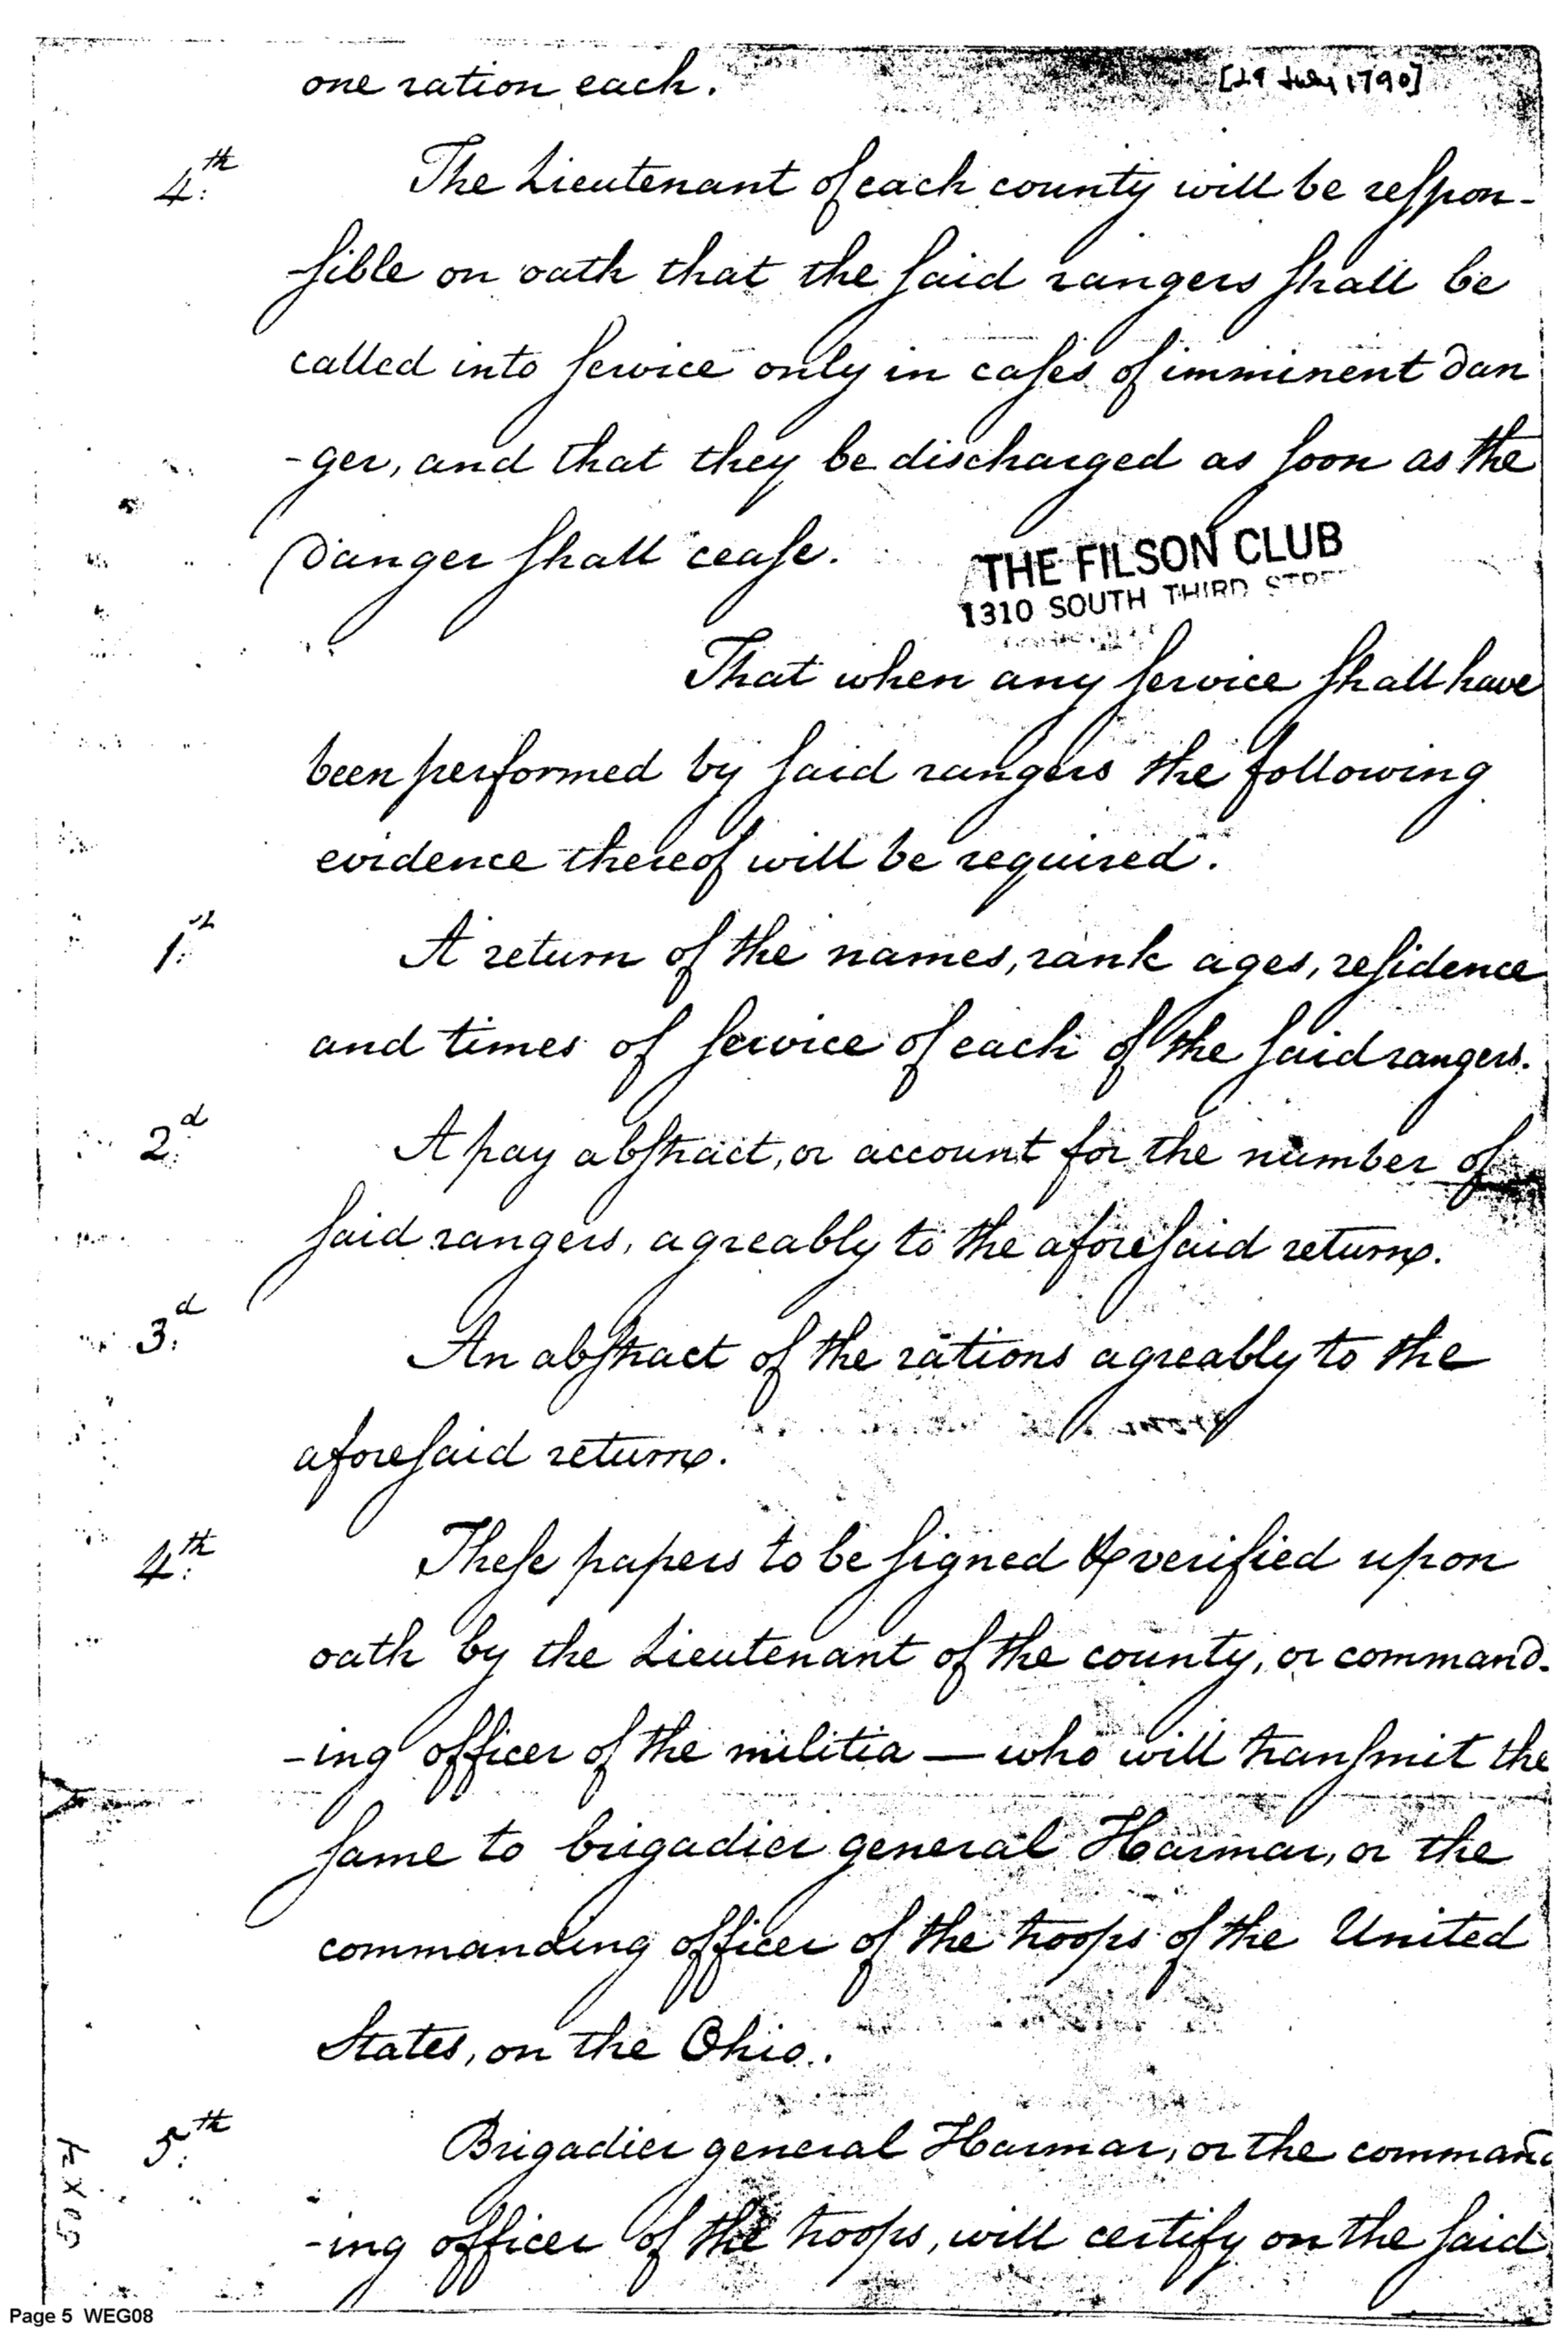 one ration each.
[29 July 1790]
4.th The Lieutenant of each county will be respon-
-sible on oath that the said rangers shall be
called into service only in cases of imminent dan
-ger, and that they be discharged as soon as the
danger shall cease.
THE FILSON CLUB
1310 SOUTH THIRD STREET
That when any service shall have
been performed by said rangers the following
evidence thereof will be required.
1.st A return of the names, rank ages, residence
and times of service of each of the said rangers.
2.d A pay abstract, or account for the number of
said rangers, agreably to the aforesaid returns.
3.d An abstract of the rations agreably to the
aforesaid returns.
4.th These papers to be signed & verified upon
oath by the Lieutenant of the county, or command-
-ing officer of the militia — who will transmit the
same to brigadier general Harmar, or the
commanding officer of the troops of the United
States, on the Ohio.
5.th Brigadier general Harmar, or the command
-ing officer of the troops, will certify on the said
Page 5 WEG08